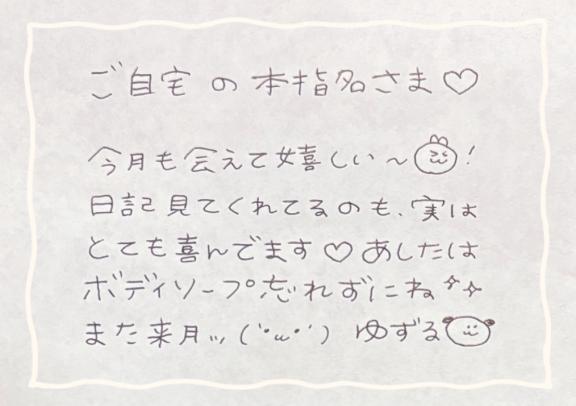 ご自宅の本指名さま♡
今月も会えて嬉しい〜!
日記見てくれてるのも、実は
とても喜んでます♡あしたは
ボディソープ忘れずにね✧✧
また来月、、(´•ω•`)ゆずる